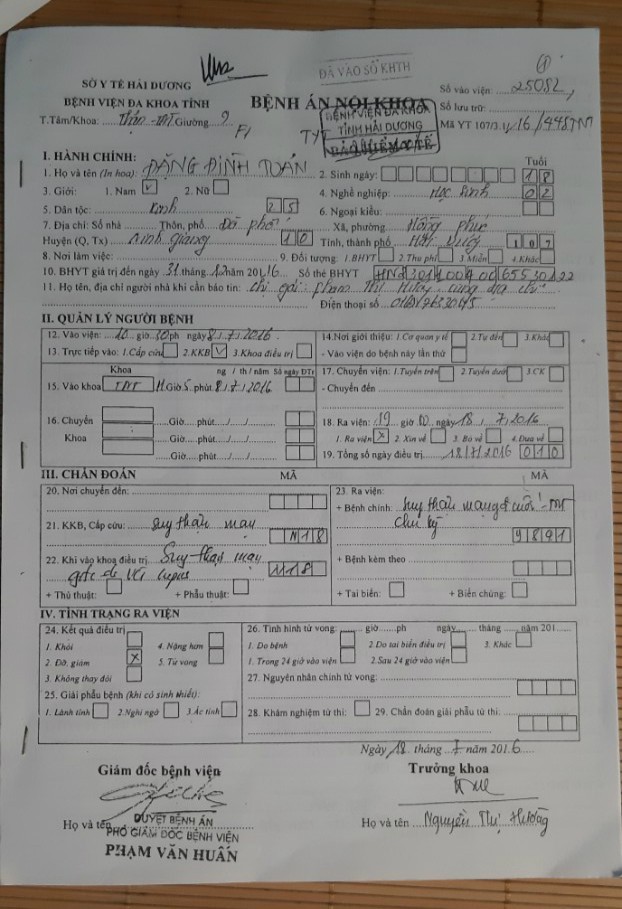 ĐÃ VÀO SỔ KHTH
SỞ Y TẾ HẢI DƯƠNG
BỆNH VIỆN ĐA KHOA TỈNH
T.Tâm/Khoa: Thận - TNT Giường ?
F1
BỆNH ÁN NỘI KHOA
TYT
BỆNH VIỆN ĐA KHOA
TỈNH HẢI DƯƠNG
BẢO HIỂM Y TẾ
Số vào viện: 25082
Số lưu trữ:
Mã YT 107/3
I. HÀNH CHÍNH:
Tuổi
1. Họ và tên (In hoa): ĐẶNG ĐÌNH TOÁN
2. Sinh ngày: 18
3. Giới: 1. Nam V 2. Nữ
4. Nghề nghiệp: Học Sinh 02
5. Dân tộc: Kinh 25
6. Ngoại kiều:
7. Địa chỉ: Số nhà Thôn, phố
Xã, phường Hồng Phúc
Huyện (Q, Tx) Ninh Giang 10
Tỉnh, thành phố Hải Dương 107
8. Nơi làm việc:
9. Đối tượng: 1.BHYT 2. Thu phí 3. Miễn 4.Khác
10. BHYT giá trị đến ngày 31 tháng 12 năm 2016 Số thẻ BHYT
11. Họ tên, địa chỉ người nhà khi cần báo tin: chị gái: Phạm Thị
Điện thoại số
II. QUẢN LÝ NGƯỜI BỆNH
12. Vào viện: 10 giờ 30 ph ngày 8/7/2016
14.Nơi giới thiệu: 1.Cơ quan y tế 2.Tự đến 3.Khác
13. Trực tiếp vào: 1.Cấp cứu 2.KKB V 3.Khoa điều trị
- Vào viện do bệnh này lần thứ
Khoa ng / th / năm Số ngày ĐTr
17. Chuyển viện: 1.Tuyến trên 2.Tuyến dưới 3.CK
15. Vào khoa TNT 11 Giờ 5 phút 8/7/2016
- Chuyển đến
16. Chuyển Giờ phút / /
Khoa Giờ phút / /
Giờ phút / /
18. Ra viện: giờ 00 ngày 18/7/2016
1. Ra viện X 2. Xin về 3. Bỏ về 4.Đưa về
19. Tổng số ngày điều trị 18/7/2016 010
III. CHẨN ĐOÁN
MÃ
MÃ
20. Nơi chuyển đến:
23. Ra viện:
+ Bệnh chính: Suy thận mạn gđ cuối - TNT
chu kỳ
21. KKB, Cấp cứu: Suy thận mạn N18
22. Khi vào khoa điều trị Suy thận mạn
N18
+ Bệnh kèm theo
+ Thủ thuật: + Phẫu thuật:
+ Tai biến: + Biến chứng:
IV. TÌNH TRẠNG RA VIỆN
24. Kết quả điều trị
1. Khỏi 4. Nặng hơn
2. Đỡ, giảm X 5. Tử vong
3. Không thay đổi
26. Tình hình tử vong: giờ ph ngày tháng năm 201
1. Do bệnh 2.Do tai biến điều trị 3. Khác
1. Trong 24 giờ vào viện 2.Sau 24 giờ vào viện
27. Nguyên nhân chính tử vong:
25. Giải phẫu bệnh (khi có sinh thiết):
1. Lành tính 2.Nghi ngờ 3.Ác tính
28. Khám nghiệm tử thi: 29. Chẩn đoán giải phẫu tử thi:
Ngày 18 tháng 7 năm 2016
Giám đốc bệnh viện
Trưởng khoa
Họ và tên
DUYỆT BỆNH ÁN
PHÓ GIÁM ĐỐC BỆNH VIỆN
PHẠM VĂN HUẤN
Họ và tên Nguyễn Thị Hường